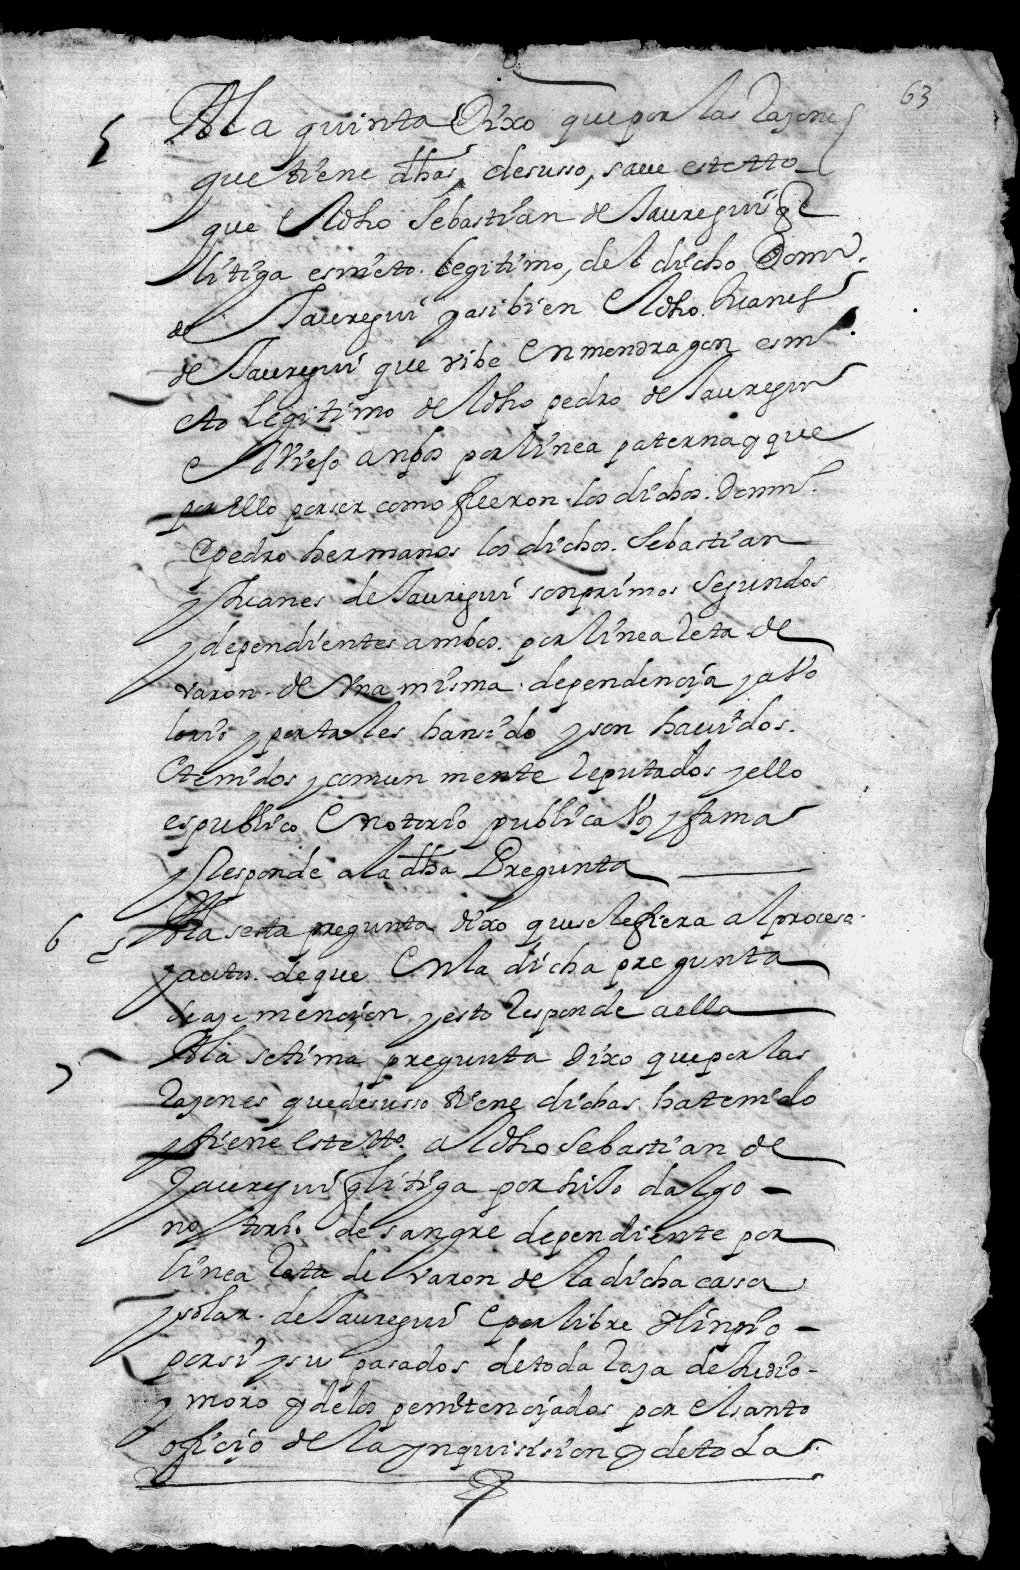 63
5 A la quinta Dixo que por las Razones
que tiene dhas, desusso, save este tto
que El dho Sebastian de Jauregui q̃
litiga es nieto legitimo, del dicho Domi.
de Jauregui y asi bien El dho. Juanes
de Jauregui que vibe En mondragon es ni
eto legitimo del dho pedro de Jauregui
El Viejo anbos por linea paterna y que
por Ello por ser como fueron los dichos. domi.
E pedro hermanos los dichos. Sebastian
y Juanes de Jauregui son primos segundos
y dependientes ambos. por linea Reta de
varon. de Vna misma. dependencia y abo
lorio y por tales han sido y son havidos.
E tenidos y comun mente Reputados y ello
es publico E notorio publica boz y fama
y Responde a la dha Pregunta
6 A la sesta pregunta dixo que se Refiera al proceso
y autos. de que En la dicha pregunta
se aze mencion y esto Responde a ella
7 A la setima pregunta dixo que por las
Razones que desusso tiene dichas ha tenido
y tiene Este tto. al dho Sebastian de
Jauregui q̃ litiga por hijo dalgo
notorio. de sangre dependiente por
linea Reta de varon de la dicha cassa
y solar. de Jauregui E por libre E linpio
por si y sus pasados de toda Raza de Judio
y moro y de los penitenciados por El santo
oficio de la ynquisision y de todas